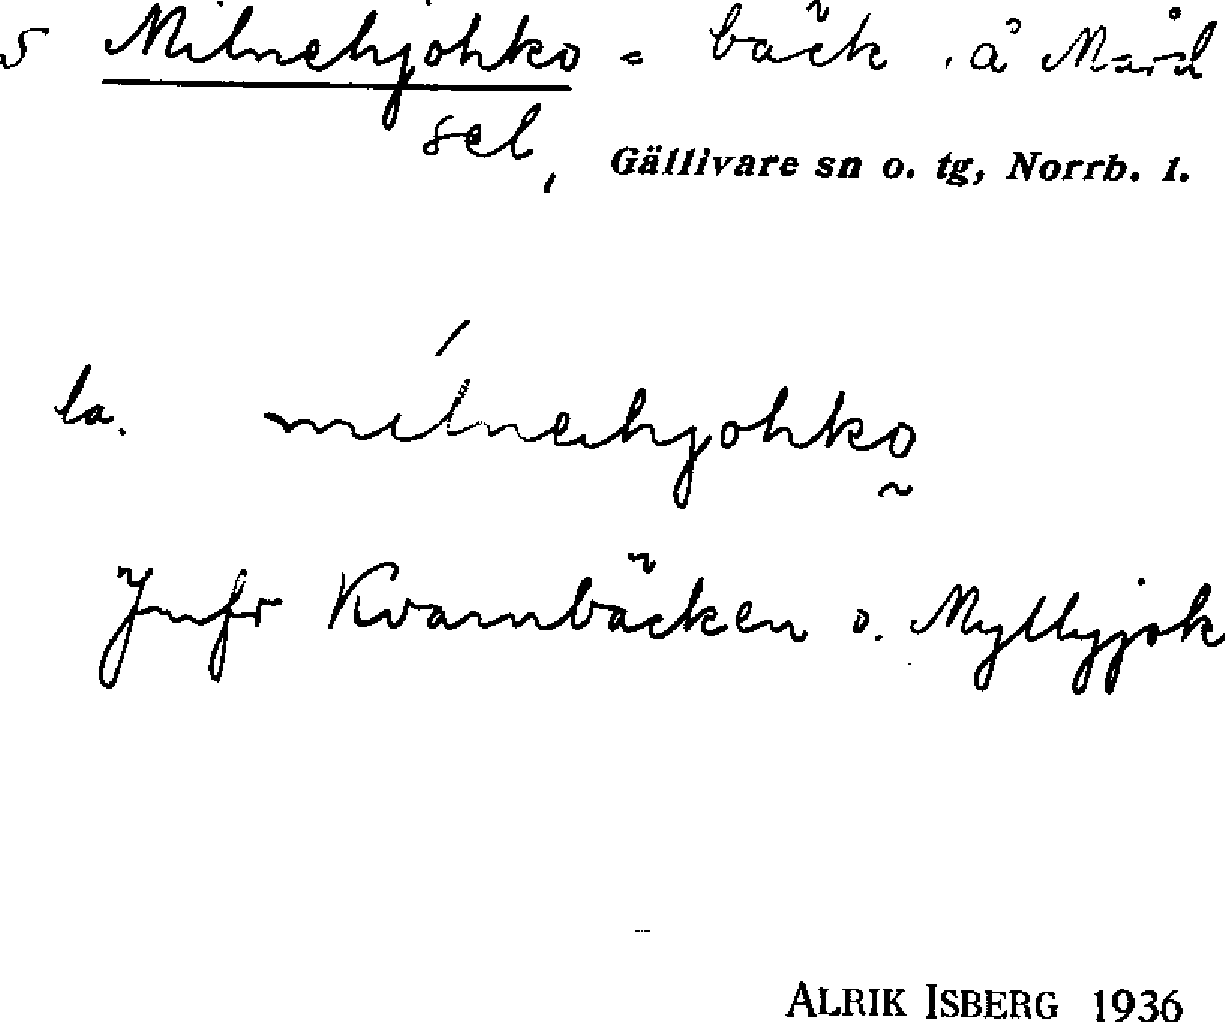 5 Milnehjohko = bäck . å Mård
sel, Gällivare sn o. tg, Norrb. l.
la. milnehjohko
Jmfr Kvarnbäcken o. Myllyjok
ALRIK ISBERG 1936